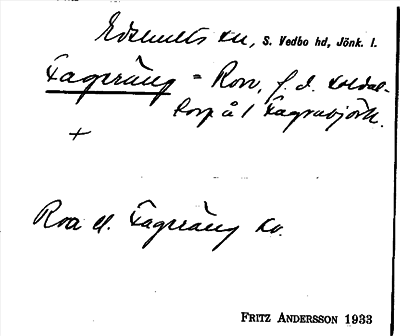 Edshults sn, S. Vedbo hd, Jönk. l.
Fageräng = Ron, f. d. soldat-
torp å 1 Fagrabjörk.
+
Roa el. Fageräng ko.
FRITZ ANDERSSON 1933